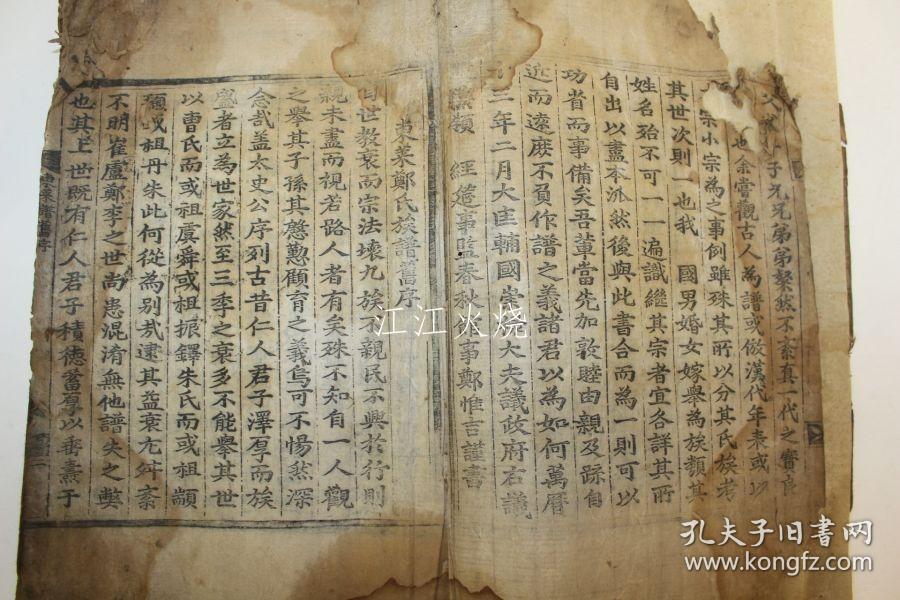 子兄兄弟弟粲然不紊真一代之實良
也余嘗觀古人為譜或倣漢代年表或以
宗小宗為之事例雖殊其所以分其氏族考
其世次則一也我 國男婚女嫁舉為族類其
姓名殆不可一一遍識繼其宗者宜各詳其所
自出以盡本派然後與此書合而為一則可以
功省而事備矣吾輩當先加敦睦由親及踈自
近而遠庶不負作譜之義諸君以為如何萬曆
三年二月大匡輔國崇大夫議政府右議
領 經筵事監春秋館事鄭惟吉謹書
東萊鄭氏族譜舊序
自世教衰而宗法壞九族不親民不興於行則
親未盡而視若路人者有矣殊不知自一人觀
之舉其子孫其慇懃顧育之義烏可不惕然深
念哉盖太史公序列古昔仁人君子澤厚而族
盛者立為世家然至三季之衰多不能舉其世
以曹氏而或祖虞舜或祖振鐸朱氏而或祖顓
頊或祖丹朱此何從為別哉逮其益衰尤舛紊
不明崔盧鄭李之世尚患混淆無他譜失之弊
也其上世既有仁人君子積德蓄厚以垂燾于
江江火烧
孔夫子旧书网
www.kongfz.com